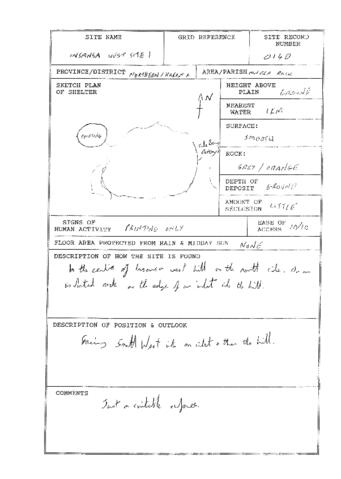 SITE NAME
GRID REFERENCE
SITE RECORD
NUMBER
INSANSA WEST SITE 1
0160
PROVINCE/DISTRICT NORTHERN/KASAMA
AREA/PARISH ROCK
SKETCH PLAN
OF SHELTER
N
HEIGHT ABOVE
PLAIN GROUND
NEAREST
WATER 1KM
SURFACE:
SMOOTH
ROCK:
GREY/ORANGE
DEPTH OF
DEPOSIT GROUND
AMOUNT OF
SECLUSION LITTLE
SIGNS OF
HUMAN ACTIVITY PAINTING ONLY
EASE OF
ACCESS 10/10
FLOOR AREA PROTECTED FROM RAIN & MIDDAY SUN NONE
DESCRIPTION OF HOW THE SITE IS FOUND
In the centre of west hill on the north side. On an
isolated rock on the edge of an inlet into the hill.
DESCRIPTION OF POSITION & OUTLOOK
Facing South West into an inlet the hill.
COMMENTS
Just a suitable surface.